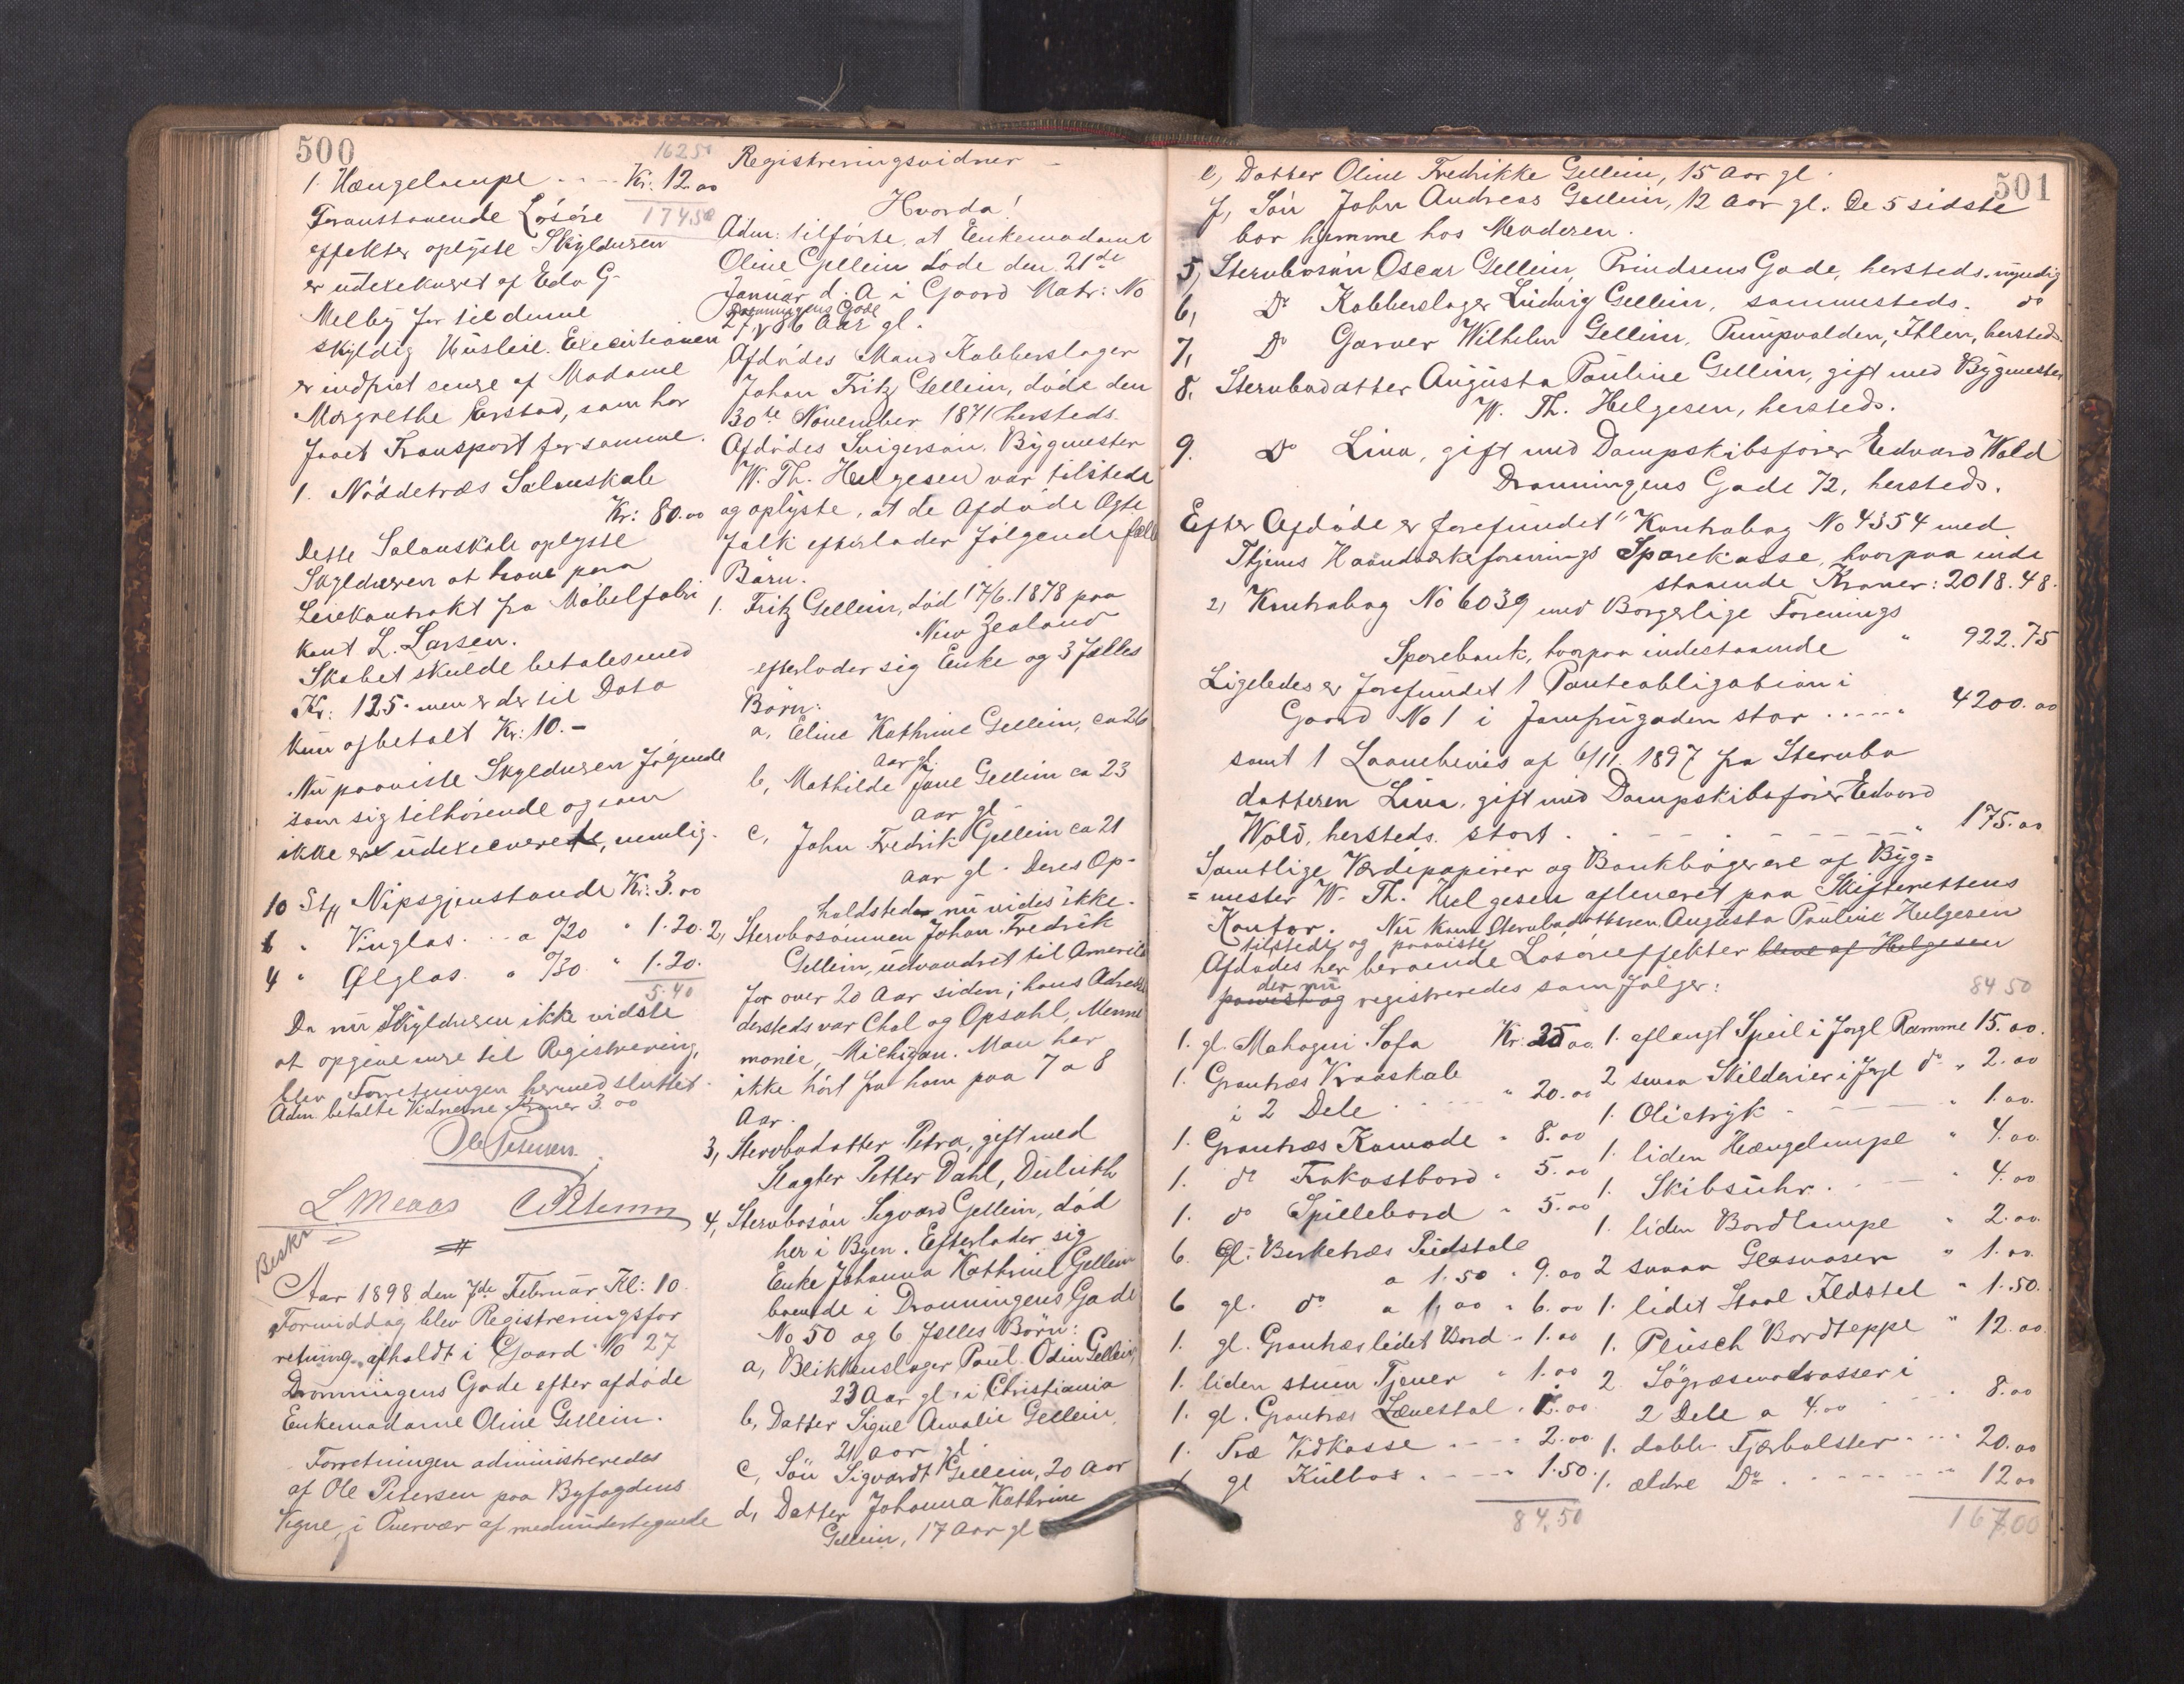 500
1625⁰
1. Hængelampe - - - Kr. 12.00
17450
Foranstaaende Løsøre
effekter oplyste Skyldneren
er udexekveret af Edv G.
Melby for til denne
skyldig Husleie. Executionen
er indfriet senere af Madame
Margrethe Erstad, som har
faaet Transport for samme.
1. Nøddetræs Salonskab
Kr: 80.00
Dette Salonskab oplyste
Skyldneren at have paa
Leiekontrakt fra Møbelfabri
kant L. Larsen.
Skabet skulde betales med
Kr: 125.- men er der til Dato
kun afbetalt Kr: 10.-
Nu paaviste Skyldneren følgende
som sig tilhørende og som
ikke er udexekverede, nemlig.
10 Stk Nipsgjenstande Kr: 3.00
6 " Vinglas. - - a %20 " 1.20.
4 " Ølglas. " %30 " 1.20.
5.40
Da nu Skyldneren ikke vidste
at opgive mere til Registrering,
blev Forretningen hermed sluttet.
Adm. betalte Vidnerne Kroner 3.00
Ole Petersen.
L Meaas C Petersen
Beskr
Aar 1898 den 7de Februar Kl: 10
Formiddag blev Registreringsfor
retning afholdt i Gaard No 27
Dronningens Gade efter afdøde
Enkemadame Oline Gellein.
Forretningen administreredes
af Ole Petersen paa Byfogdens
Vegne, i Overvær af medundertegnede
Registreringsvidner -
Hvorda!
Adm: tilførte, at Enkemadame
Oline Gellein døde den 21de
Januar d. A i Gaard Matr: No
Dronningens Gade
27, 86 Aar gl.
Afdødes Mand Kobberslager
Johan Fritz Gellein, døde den
30te November 1871 hersteds.
Afdødes Svigersøn, Bygmester
W. Th. Helgesen var tilstede
og oplyste, at de Afdøde Ægte
folk efterlader følgende fælles
Børn.
1. Fritz Gellein, død 17/6.1878 paa
New Zealand
efterlader sig Enke og 3 fælles
Børn:
a, Eline Kathrine Gellein, ca 26
aar gl.
b, Mathilde Jane Gellein ca 23
aar gl -
c, John Fredrik Gellein ca 21
aar gl. Deres Op-
holdsteder nu vides ikke.
2, Stervbosønnen Johan Fredrik
Gellein, udvandret til Amerika
for over 20 Aar siden; hans Adresse
dersteds var Chal og Opsahl, Menne
monie, Michigan. Man har
ikke hørt fra ham paa 7 a 8
Aar.
3, Stervbodatter Petra, gift med
Slagter Petter Dahl, Duluth
4, Stervbosøn Sigvard Gellein, død
her i Byen. Efterlader sig
Enke Johanna Kathrine Gellein
boende i Dronningens Gade
No 50 og 6 fælles Børn:
a, Blikkenslager Paul Odin Gellein,
23 Aar gl. i Christiania
b, Datter Signe Amalie Gellein,
21 aar gl.
c, Søn Sigvardt Gellein, 20 aar
d, Datter Johanna Kathrine
Gellein, 17 Aar gl
501
e, Datter Oline Fredrikke Gellein, 15 aar gl.
f, Søn John Andreas Gellein, 12 aar gl. De 5 sidste
bor hjemme hos Moderen.
5, Stervbosøn Oscar Gellein, Prindsens Gade, hersteds. myndig
6, Do Kobberslager Ludvig Gellein, sammesteds. do
7, Do Garver Wilhelm Gellein, Pumpvolden, Ihlen, hersteds
8. Stervbodatter Augusta Pauline Gellein, gift med Bygmester
W. Th. Helgesen, hersteds.
9. Do Lina, gift med Dampskibsfører Edvard Wold
Dronningens Gade 72, hersteds.
Efter Afdøde er forefundet 1) Kontrabog No 4354 med
Thjems Haandværkeforenings Sparekasse, hvorpaa inde
staaende Kroner: 2018.48.
2, Kontrabog No 6039 med Borgerlige Forenings
Sparebank, hvorpaa indestaaende " 922.75
Ligeledes er forefundet 1 Panteobligation i
Gaard No 1 i Jomfrugaden stor ..... " 4200.00
samt 1 Laanebevis af 6/11. 1897 fra Stervbo
datteren Lina, gift med Dampskibsfører Edvard
Wold, hersteds. stort. - - - - - - " 175.00
Samtlige Værdipapirer og Bankbøger ere af Byg=
=mester W. Th. Helgesen afleveret paa Skifterettens
Kontor. Nu kom Stervbodatteren Augusta Pauline Helgesen
tilstede og paaviste
Afdødes her beroende Løsøreeffekter blive af Helgesen
der nu
paavist og registreredes som følger:
84 50
1. gl. Mahogni Sofa Kr: 25.00
1. Grantræs Kroskab
i 2 Dele - - - - " 20.00
1. Grantræs Komode " 8.00
1. do Frokostbord " 5.00
1. do Spillebord " 5.00
6 gl. Birketræs Rørstole
a 1.50 " 9.00
6 gl. do a 1.00 " 6.00
1. gl. Grantræs lidet Bord " 1.00
1. liden stum Tjener " 1.00
1. gl. Grantræs Lænestol . 1.00
1. Træ Vedkasse - - - - 2.00
1 gl Kulbox - - - - 1.50
84,50
1. aflangt Speil i forgl. Ramme 15.00.
2 smaa Skilderier i forgl do " 2.00
1. Olietryk - - - - " 1.00.
1. liden Hængelampe " 4.00.
1. Skibsuhr. - - - " 4.00
1. liden Bordlampe " 2.00.
2 smaa Glasvaser " 1.00.
1. lidet Staal Ildstel " 1.50.
1. Plusch Bordteppe " 12.00.
2 Søgræsmadrasser i
2 Dele a 4.00 . 8.00
1. dobb. Fjærbolster - - - 20.00
1. ældre Do . - - - - " 12.00
167.00